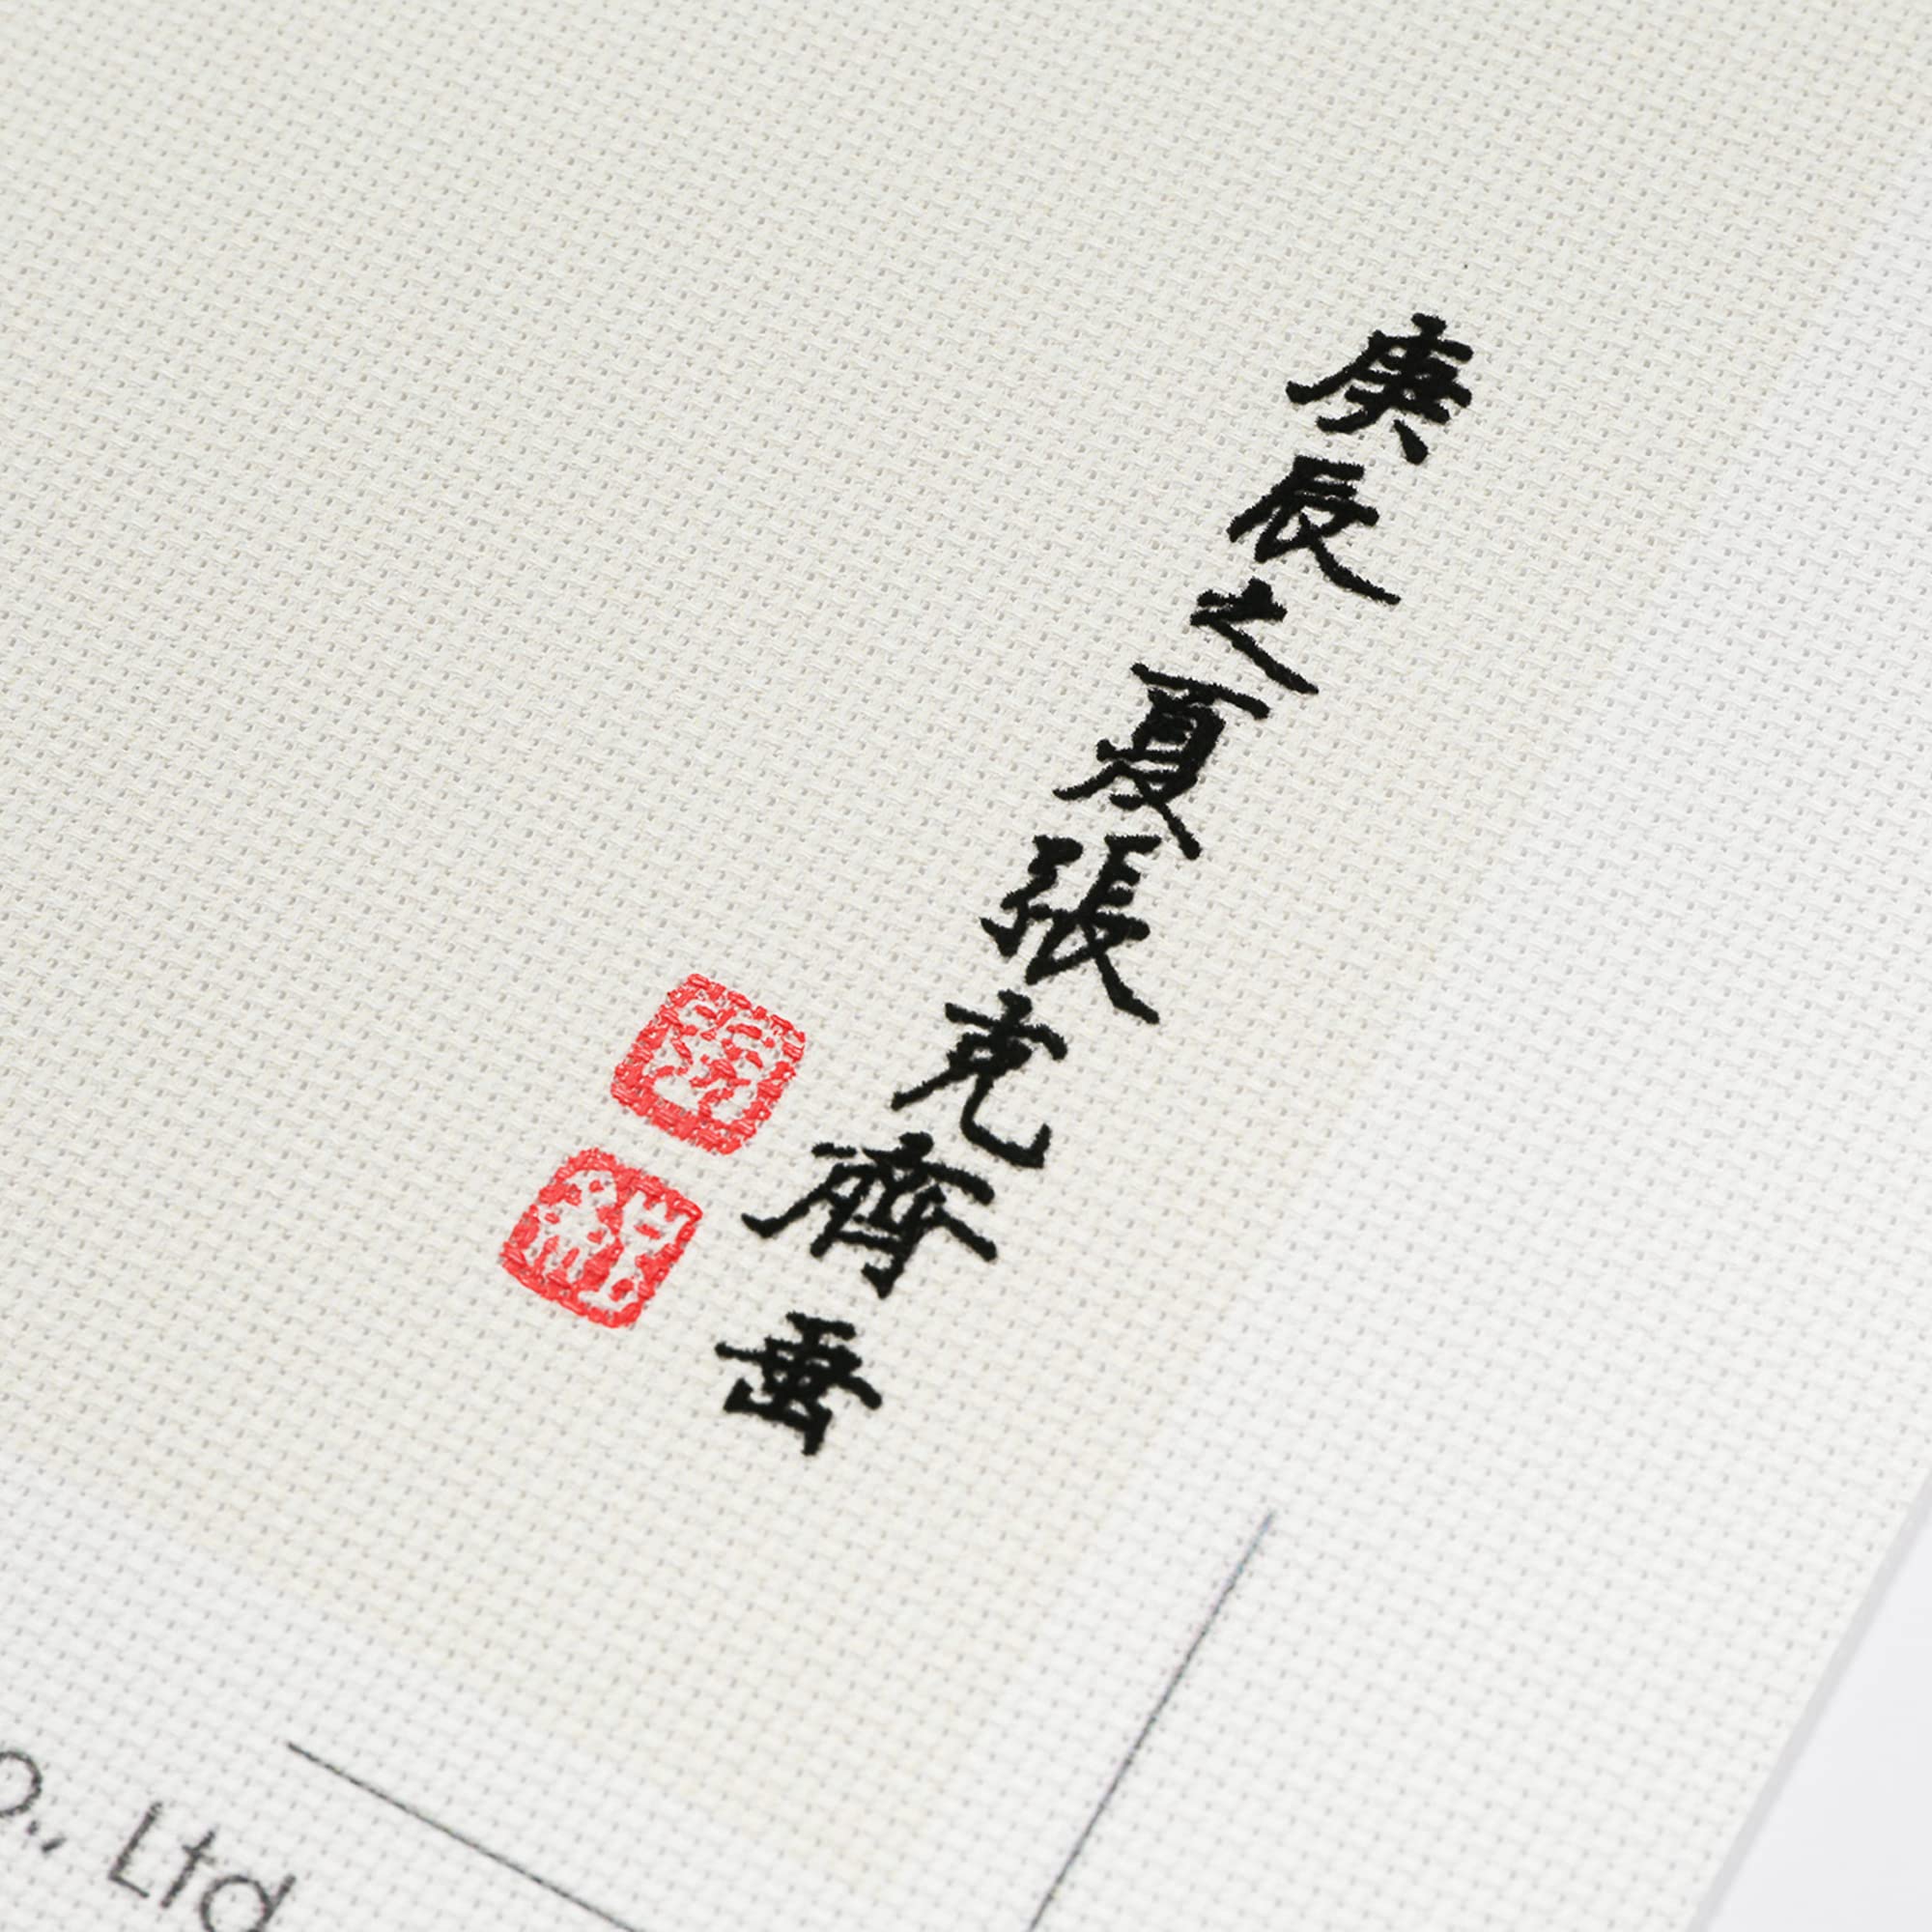 庚辰之夏張克齊画
o., Ltd